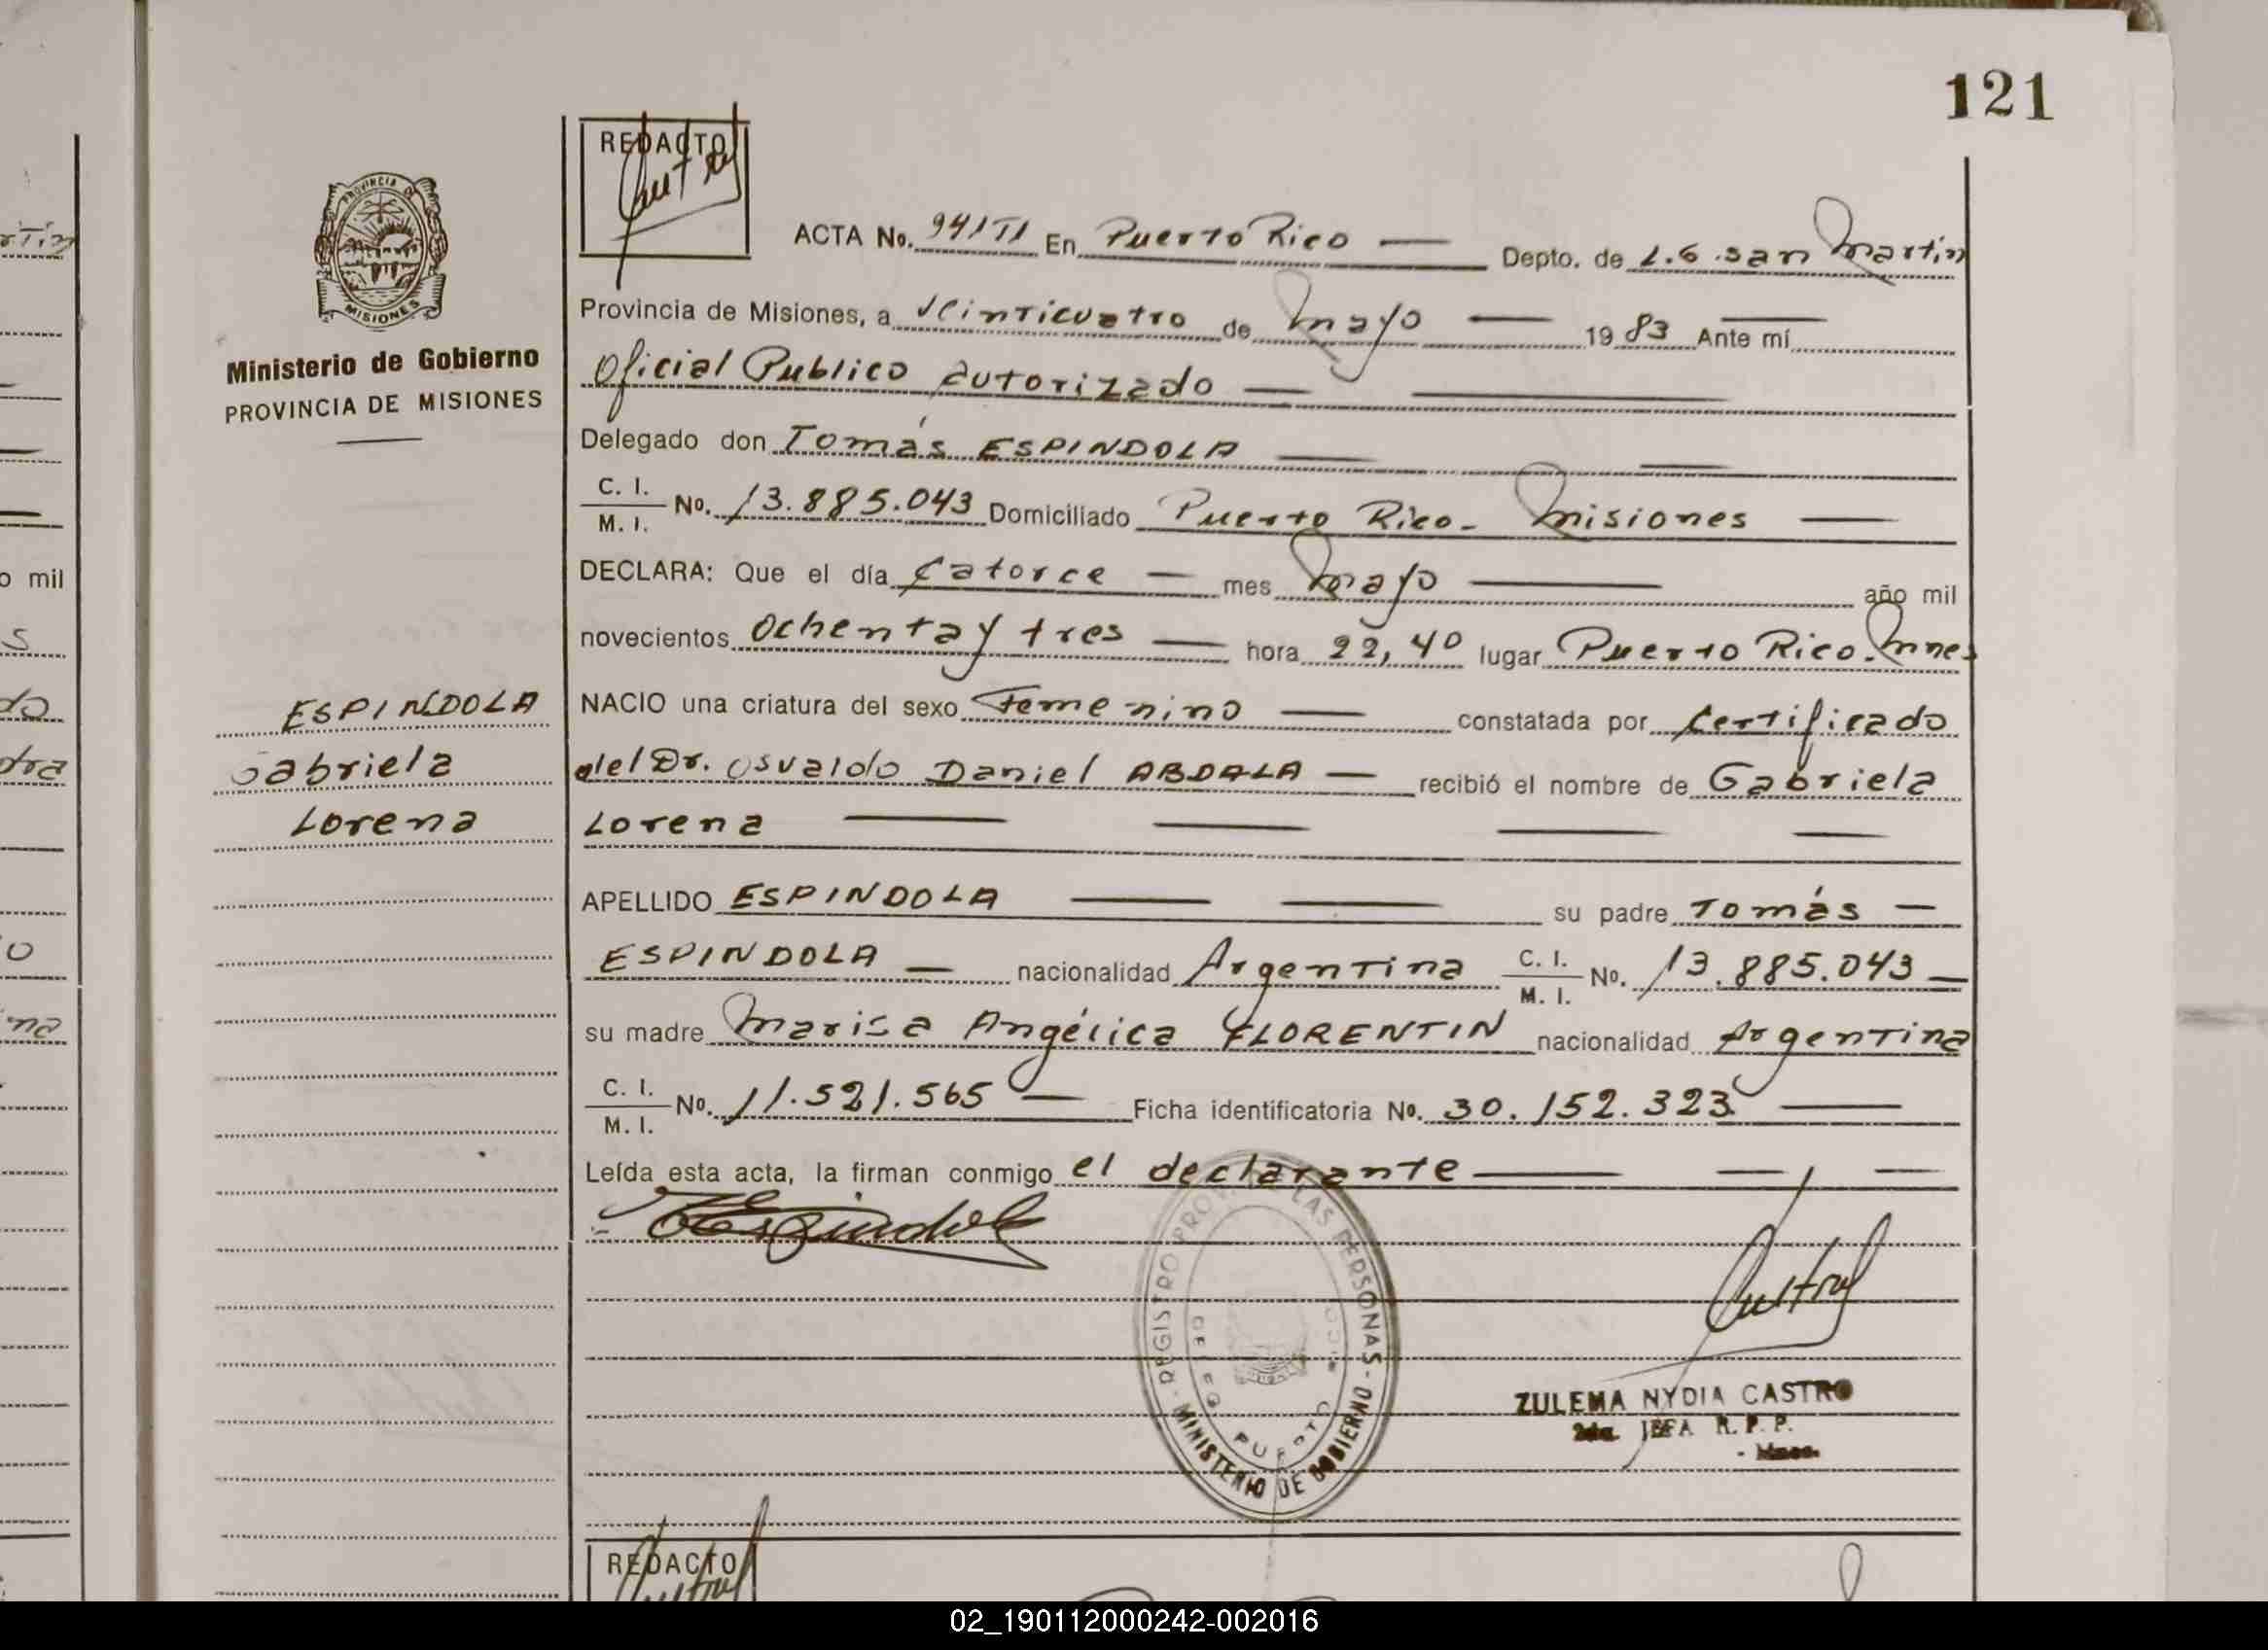 121
REDACTO
ACTA No. 94/TI En Puerto Rico — Depto. de L.G. San Martín
Provincia de Misiones, a Veinticuatro de Mayo — 1983 Ante mí
Oficial Publico autorizado —
Delegado don Tomás ESPINDOLA —
C. I. / M. I. No. 13.885.043 Domiciliado Puerto Rico - Misiones —
DECLARA: Que el día Catorce — mes Mayo — año mil
novecientos Ochenta y tres — hora 22,40 lugar Puerto Rico. Mnes
NACIO una criatura del sexo Femenino — constatada por Certificado
del Dr. Osvaldo Daniel ABDALA — recibió el nombre de Gabriela
Lorena —
APELLIDO ESPINDOLA — su padre Tomás —
ESPINDOLA — nacionalidad Argentina C. I. / M. I. No. 13.885.043 —
su madre Marisa Angélica FLORENTIN nacionalidad Argentina
C. I. / M. I. No. 11.521.565 — Ficha identificatoria No. 30.152.323 —
Leída esta acta, la firman conmigo el declarante —
PROVINCIA DE
MISIONES
Ministerio de Gobierno
PROVINCIA DE MISIONES
ESPINDOLA
Gabriela
Lorena
REGISTRO PROV. DE LAS PERSONAS - MINISTERIO DE GOBIERNO -
DELEG. PUERTO RICO
ZULEMA NYDIA CASTRO
2da. JEFA R. P. P.
- Mnes.
REDACTO
o mil
02_190112000242-002016